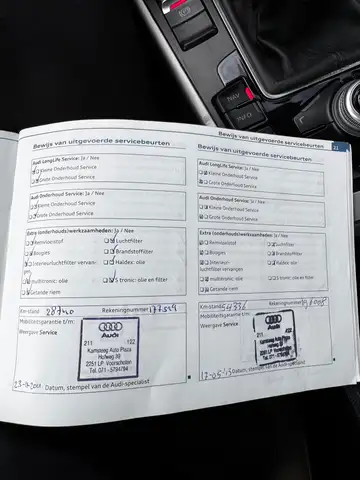 NAV
Bewijs van uitgevoerde servicebeurten
Bewijs van uitgevoerde servicebeurten
Audi LongLife Service: Ja / Nee
Kleine Onderhoud Service
Grote Onderhoud Service
Audi Onderhoud Service: Ja / Nee
Kleine Onderhoud Service
Grote Onderhoud Service
Extra (onderhouds)werkzaamheden: Ja / Nee
Remvloeistof
Luchtfilter
Bougies
Brandstoffilter
Interieurluchtfilter vervan-
gen
Haldex: olie
multitronic: olie
S tronic: olie en filter
Getande riem
Km-stand: 28740
Rekeningnummer:
Mobiliteitsgarantie t/m:
Weergave Service
Audi
211 122
Kampzeeg Auto Plaza
Hofweg
2251 LP Voorschoten
Tel. 071 - 5794794
Datum, stempel van de Audi-specialist
Bewijs van uitgevoerde servicebeurten 21
Audi LongLife Service: Ja / Nee
Kleine Onderhoud Service
Grote Onderhoud Service
Audi Onderhoud Service: Ja / Nee
Kleine Onderhoud Service
Grote Onderhoud Service
Extra (onderhouds)werkzaamheden: Ja / Nee
Remvloeistof
Luchtfilter
Bougies
Brandstoffilter
Interieur-
luchtfilter vervangen
Haldex: olie
multitronic: olie
S tronic: olie en filter
Getande riem
Km-stand: 54336
Rekeningnummer:
Mobiliteitsgarantie t/m:
Weergave Service
Audi
211 122
Auto Plaza
Datum, stempel van de Audi-specialist